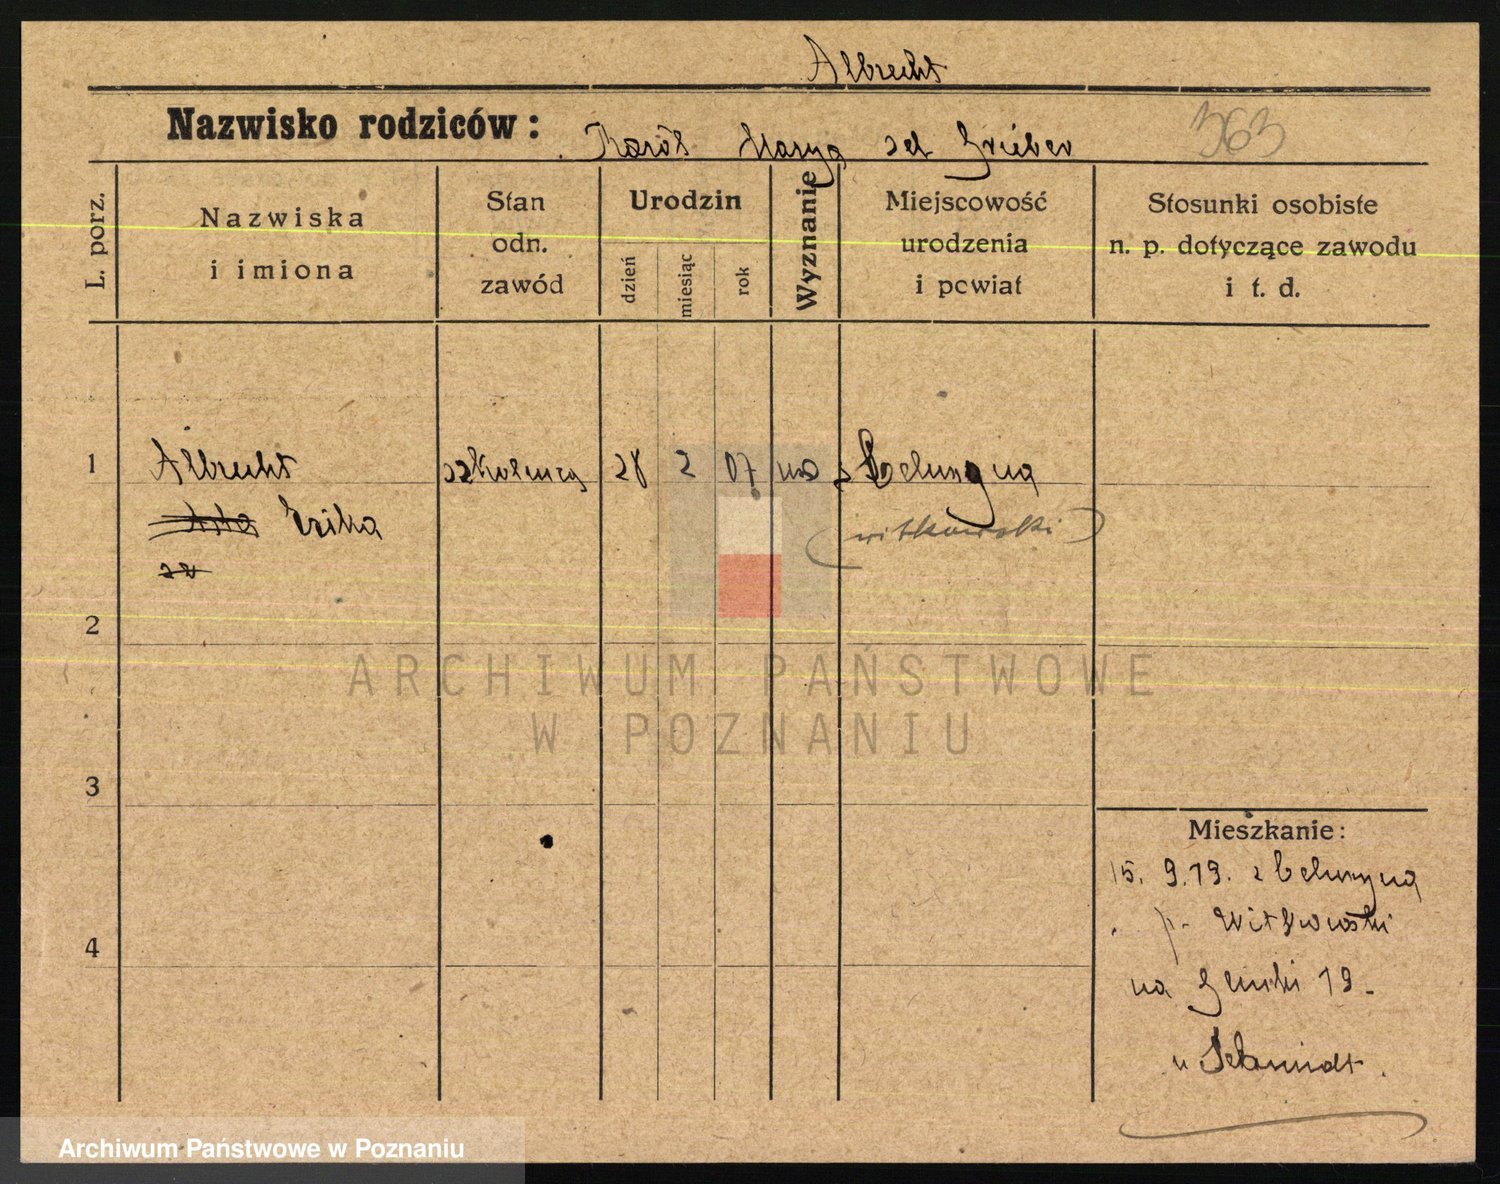 Albrecht
Nazwisko rodziców: Karól Marya
363
L. porz.
Nazwiska
i imiona
Stan
odn.
zawód
Urodzin
dzień
miesiąc
rok
Wyznanie
Miejscowość
urodzenia
i powiat
Stosunki osobiste
n. p. dotyczące zawodu
i t. d.
1
Albrecht
28 2 07
Erika
(witkowski)
2
ARCHIWUM PAŃSTWOWE
W POZNANIU
3
Mieszkanie:
15. 9. 19. z
p. Witkowski
4
na 19.
u Schmidt.
Archiwum Państwowe w Poznaniu